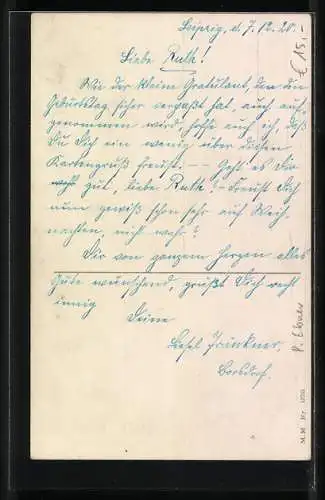 Leipzig, d. 7. 12. 20.
€ 15,-
Liebe Ruth!
Wie der kleine Gratulant, den die
Geburtstag bisher verpaßt hat, auch auf-
genommen wird, hoffe auch ich, daß
Du Dich ein wenig über diesen
Kartengruß freust! -- Geht es Dir
wohl gut, liebe Ruth? - Freust Dich
nun gewiß schon sehr auf Weih-
nachten, nicht wahr?
Dir von ganzem Herzen alles
Gute wünschend, grüßt Dich recht
innig
Deine
Liesel
Borsdorf.
P. Ebner
M. M. Nr.